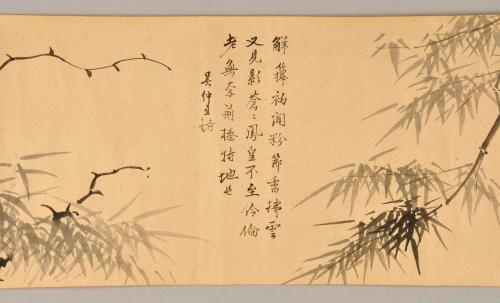 解籜初聞粉節香拂雲
又見影蒼〻鳳皇不至伶倫
老無奈荊榛特地長
吳仲圭詩